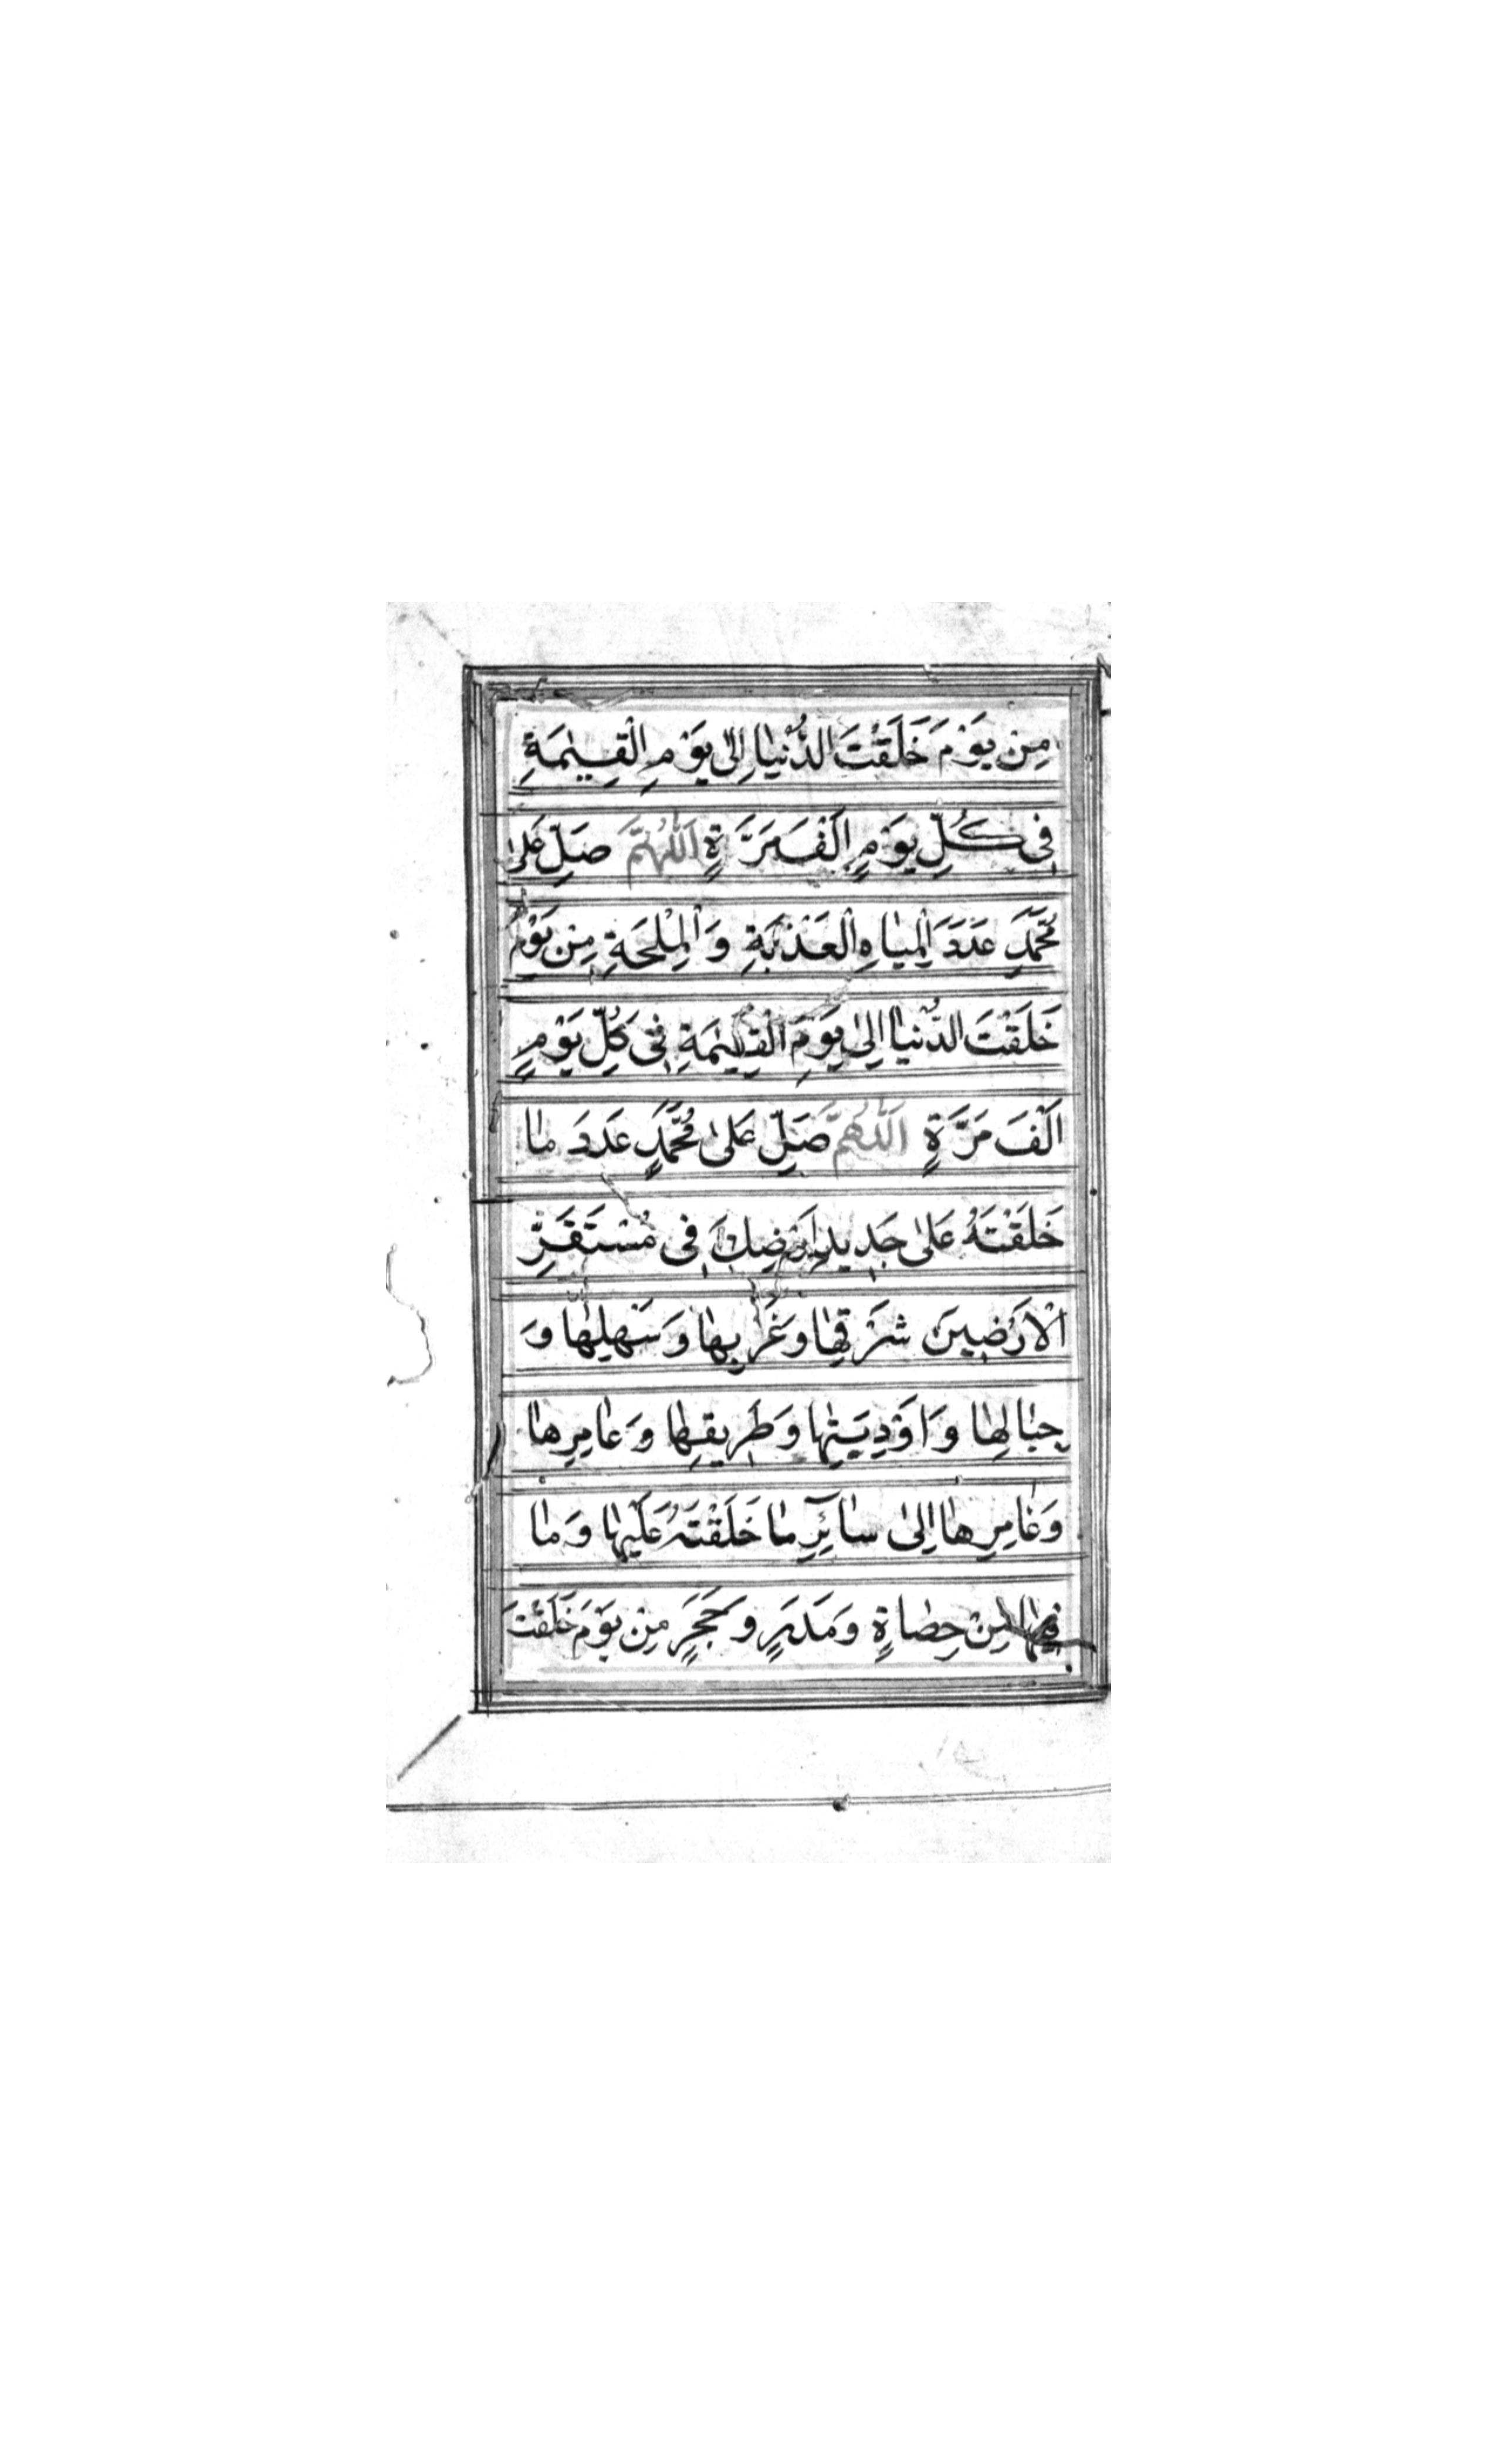 مِنْ يَوْمَ خَلَقْتَ الدُّنْيٰا اِلىٰ يَوْمِ الْقِيٰمَةِ
فِى كُلِّ يَوْمٍ اَلْفَ مَرَّةٍ اَللّٰهُمَّ صَلِّ عَلىٰ
مُحَمَّدٍ عَدَدَ الْمِيٰاهِ الْعَذْبَةِ وَالْمِلْحَةِ مِنْ يَوْمَ
خَلَقْتَ الدُّنْيٰا اِلىٰ يَوْمِ الْقِيٰمَةِ فِى كُلِّ يَوْمٍ
اَلْفَ مَرَّةٍ اَللّٰهُمَّ صَلِّ عَلىٰ مُحَمَّدٍ عَدَدَ مٰا
خَلَقْتَهُ عَلىٰ جَدِيدِ اَرْضِكَ فِى مُسْتَقَرِّ
الْاَرَضِينَ شَرْقِهٰا وَغَرْبِهٰا وَسَهْلِهٰا وَ
جِبٰالِهٰا وَاَوْدِيَتِهٰا وَطَرِيقِهٰا وَعٰامِرِهٰا
وَغٰامِرِهٰا اِلىٰ سٰآئِرِ مٰا خَلَقْتَهُ عَلَيْهٰا وَمٰا
فِيهٰا مِنْ حِصٰاةٍ وَمَدَرٍ وَحَجَرٍ مِنْ يَوْمَ خَلَقْتَ